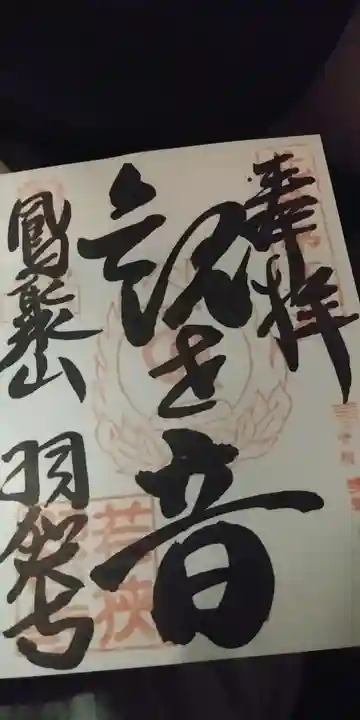 奉拝
観世音
鳳聚山 羽賀寺
若狭